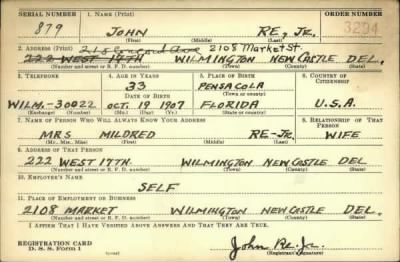 SERIAL NUMBER 1. NAME (Print) ORDER NUMBER
879 JOHN RE, JR. 3294
(First) (Middle) (Last)
2. ADDRESS (Print) 2108 Market St.
222 WEST 17TH WILMINGTON NEW CASTLE DEL.
(Number and street or R. F. D. number) (Town) (County) (State)
3. TELEPHONE 4. AGE IN YEARS 5. PLACE OF BIRTH 6. COUNTRY OF CITIZENSHIP
33 PENSACOLA
DATE OF BIRTH (Town or county)
WILM.-30022 OCT. 19 1907 FLORIDA U.S.A.
(Exchange) (Number) (Mo.) (Day) (Yr.) (State or country)
7. NAME OF PERSON WHO WILL ALWAYS KNOW YOUR ADDRESS 8. RELATIONSHIP OF THAT PERSON
MRS MILDRED RE-JR. WIFE
(Mr., Mrs., Miss) (First) (Middle) (Last)
9. ADDRESS OF THAT PERSON
222 WEST 17TH. WILMINGTON NEW CASTLE DEL.
(Number and street or R. F. D. number) (Town) (County) (State)
10. EMPLOYER'S NAME
SELF
11. PLACE OF EMPLOYMENT OR BUSINESS
2108 MARKET WILMINGTON NEW CASTLE DEL.
(Number and street or R. F. D. number) (Town) (County) (State)
I AFFIRM THAT I HAVE VERIFIED ABOVE ANSWERS AND THAT THEY ARE TRUE.
REGISTRATION CARD
D. S. S. Form 1 (over) John Re. Jr.
(Registrant's signature)